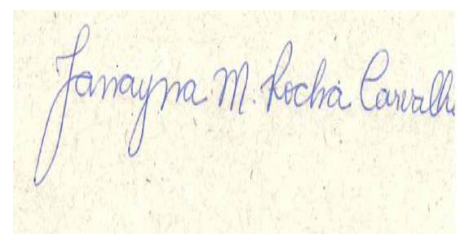 Janayna M. Rocha Carvalh